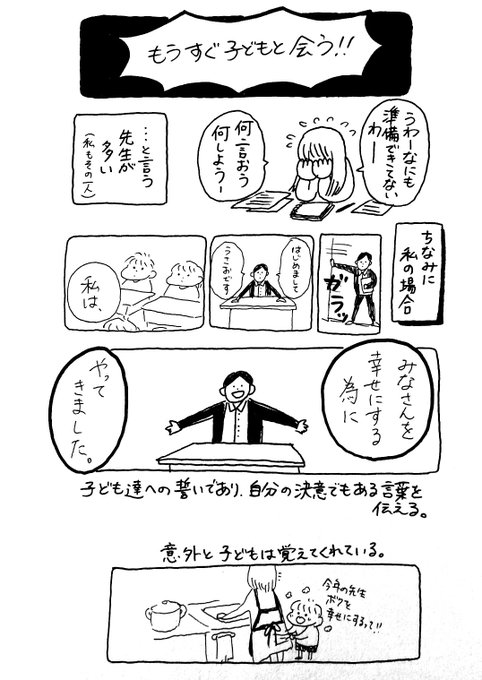 もうすぐ子どもと会う!!
うわーなにも
準備できてない
わー
何言おう
何しよう
…と言う
先生が
多い
(私もその一人)
ちなみに
私の場合
ガラッ
はじめまして
うっこおです
私は、
みなさんを
幸せにする
為に
やって
きました。
子ども達への誓いであり、自分の決意でもある言葉を
伝える。
意外と子どもは覚えてくれている。
今年の先生
ボクを
幸せにするって!!